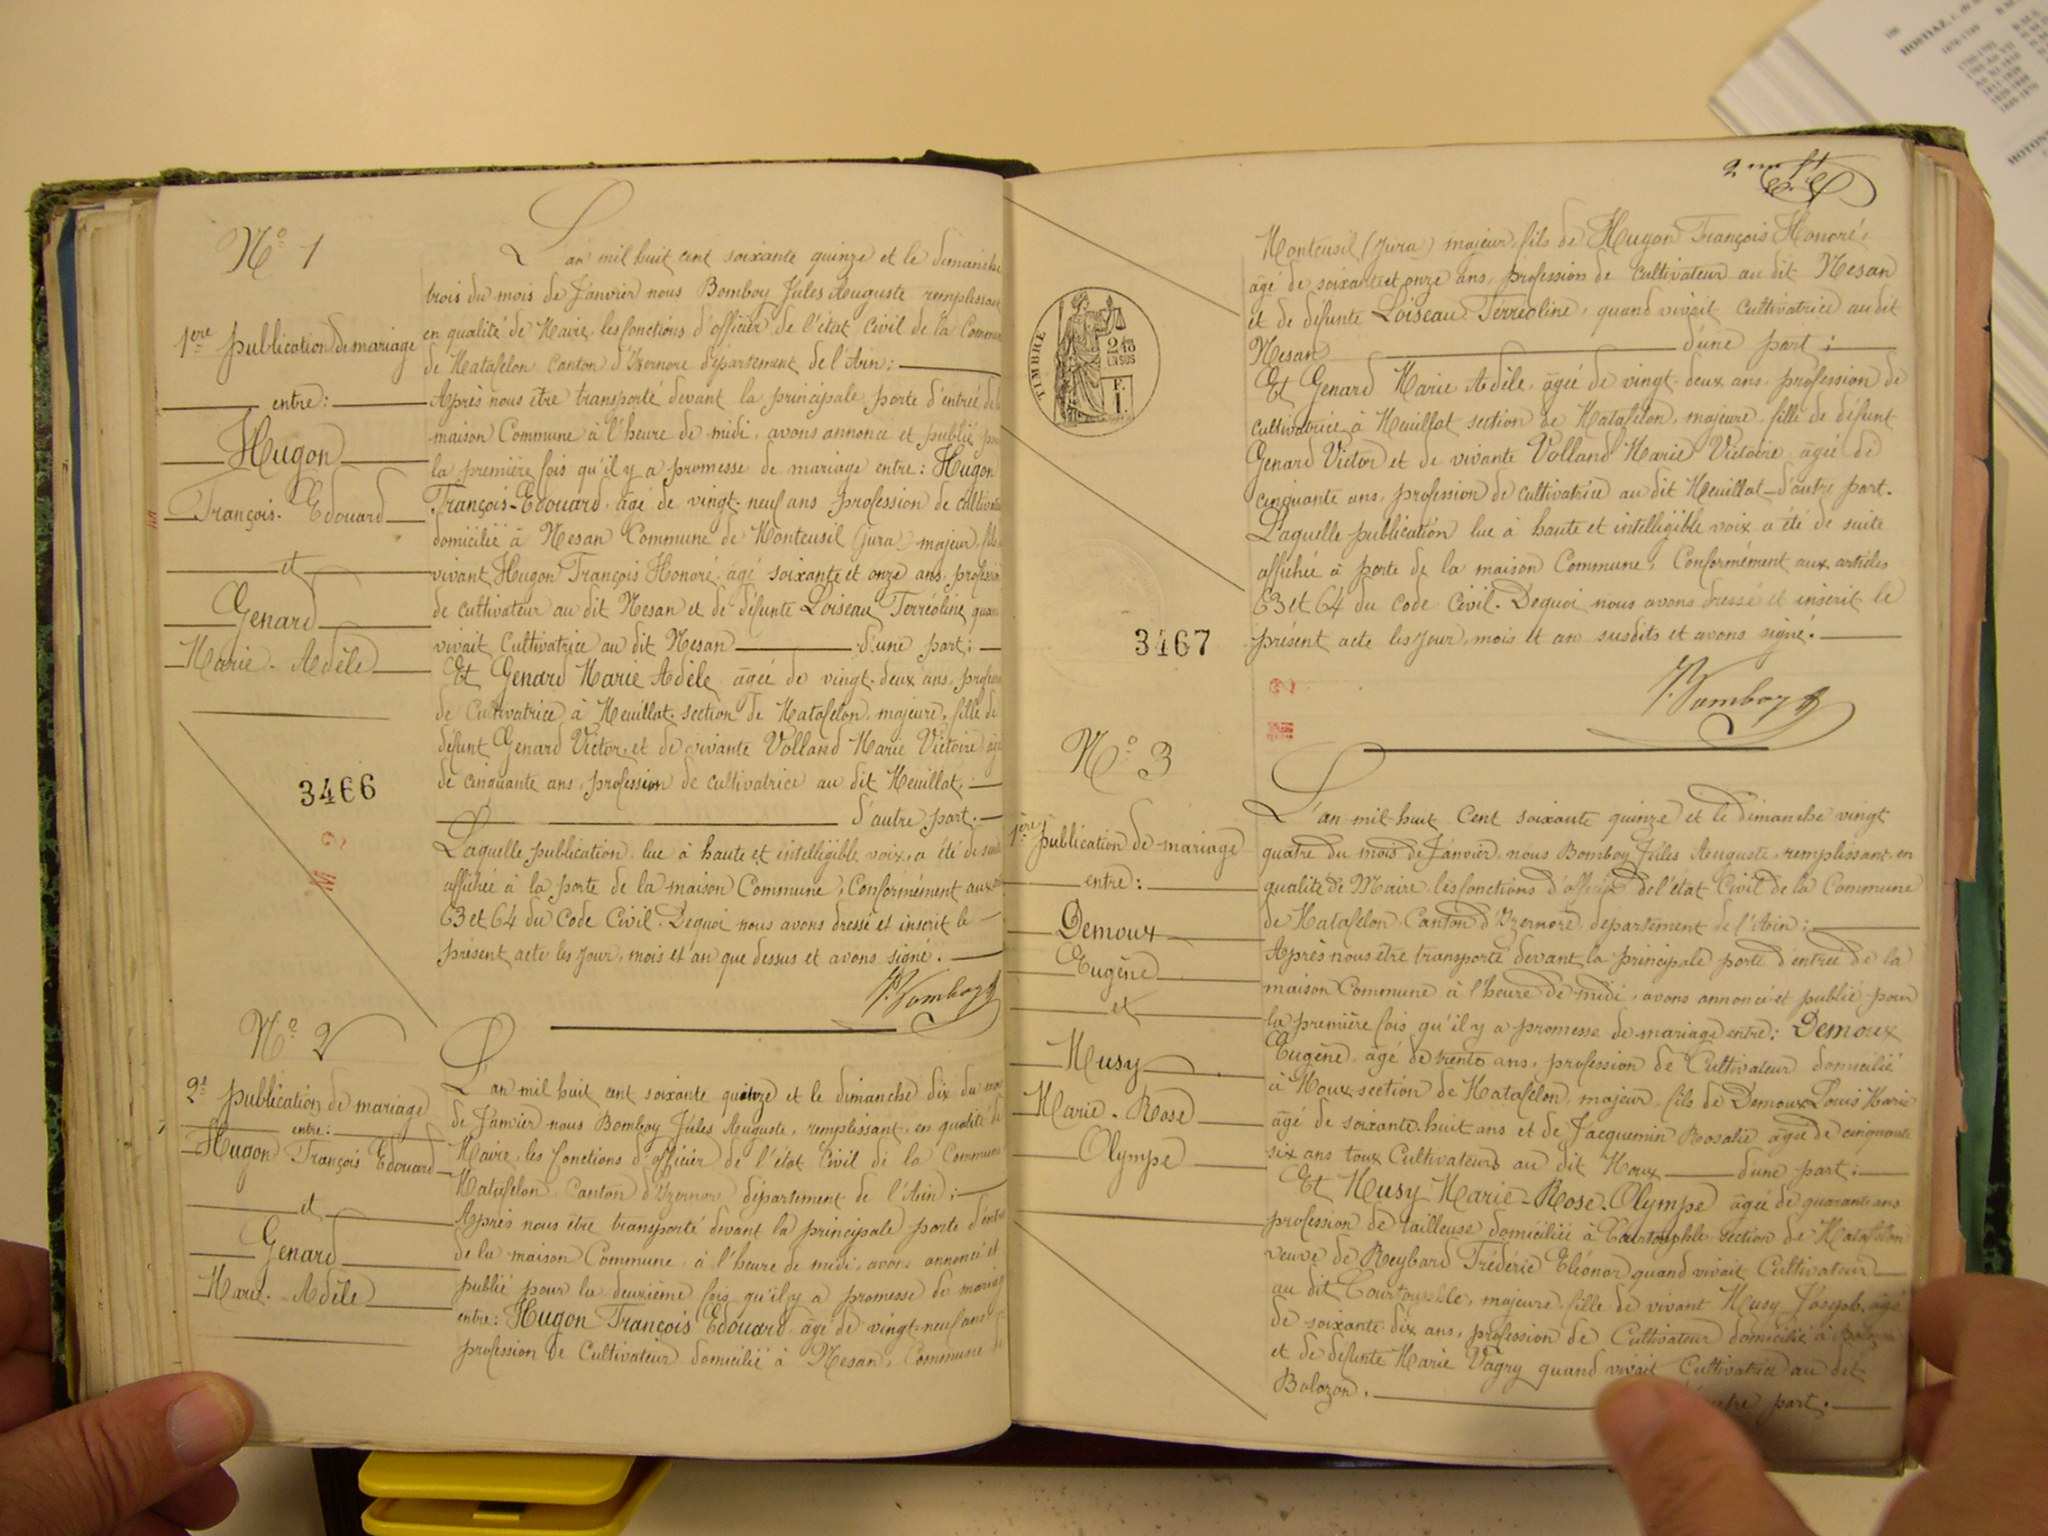 N° 1
1ère publication de mariage
entre:
Hugon
François-Edouard
et
Genard
Marie-Adèle
3466
L'an mil huit cent soixante quinze et le dimanche
trois du mois de Janvier nous Bomboy Jules Auguste remplissant
en qualité de Maire les fonctions d'officier de l'état civil de la Commune
de Matafelon Canton d'Izernore département de l'Ain:
Après nous être transporté devant la principale porte d'entrée de la
maison Commune à l'heure de midi, avons annoncé et publié pour
la première fois qu'il y a promesse de mariage entre: Hugon
François-Edouard, âgé de vingt-neuf ans profession de cultivateur
domicilié à Mesan Commune de Monteusil (Jura) majeur, fils
vivant Hugon François Honoré, âgé soixante et onze ans, profession
de cultivateur au dit Mesan et de défunte Loiseau Terréoline quand
vivait Cultivatrice au dit Mesan d'une part;
Et Genard Marie Adèle âgée de vingt-deux ans, profession
de Cultivatrice à Heuillat section de Matafelon, majeure, fille de
défunt Genard Victor, et de vivante Volland Marie Victoire âgée
de cinquante ans, profession de cultivatrice au dit Heuillat,
d'autre part.
Laquelle publication, lue à haute et intelligible voix, a été de suite
affichée à la porte de la maison Commune, Conformément aux
63 et 64 du Code Civil. Dequoi nous avons dressé et inscrit le
présent acte les jour, mois et an que dessus et avons signé.
Bomboy
N° 2
2e publication de mariage
entre:
Hugon François Edouard
et
Genard
Marie-Adèle
L'an mil huit cent soixante quinze et le dimanche dix du mois
de Janvier nous Bomboy Jules Auguste, remplissant, en qualité de
Maire, les fonctions d'officier de l'état Civil de la Commune
Matafelon, Canton d'Izernore département de l'Ain;
Après nous être transporté devant la principale porte d'entrée
de la maison Commune, à l'heure de midi, avons annoncé et
publié pour la deuxième fois qu'il y a promesse de mariage
entre: Hugon François Edouard, âgé de vingt-neuf ans
profession de Cultivateur domicilié à Mesan, Commune de
2me ft
TIMBRE
Monteusil (Jura) majeur, fils de Hugon François Honoré,
âgé de soixante et onze ans, profession de cultivateur au dit Mesan
et de défunte Loiseau Terréoline, quand vivait cultivatrice au dit
Mesan d'une part;
Et Genard Marie Adèle, âgée de vingt-deux ans, profession de
cultivatrice à Heuillat section de Matafelon, majeure, fille de défunt
Genard Victor et de vivante Volland Marie Victoire, âgée de
cinquante ans, profession de cultivatrice au dit Heuillat d'autre part.
Laquelle publication lue à haute et intelligible voix a été de suite
affichée à porte de la maison Commune, Conformément aux articles
63 et 64 du Code Civil. Dequoi nous avons dressé et inscrit le
présent acte les jour, mois et an susdits et avons signé.
Bomboy
3467
N° 3
1ère publication de mariage
entre:
Demoux
Eugène
et
Musy
Marie-Rose
Olympe
L'an mil huit Cent soixante quinze et le dimanche vingt
quatre du mois de Janvier, nous Bomboy Jules Auguste, remplissant, en
qualité de Maire les fonctions d'officier de l'état Civil de la Commune
de Matafelon Canton d'Izernore département de l'Ain:
Après nous être transporté devant la principale porte d'entrée de la
maison Commune à l'heure de midi, avons annoncé et publié pour
la première fois qu'il y a promesse de mariage entre: Demoux
Eugène, âgé de trente ans, profession de Cultivateur domicilié
à Houx section de Matafelon, majeur, fils de Demoux Louis Marie
âgé de soixante-huit ans et de Jacquemin Rosalie âgée de cinquante
six ans tous Cultivateurs au dit Houx d'une part;
Et Musy Marie-Rose-Olympe âgée de quarante ans
profession de tailleuse domiciliée à Courtouphle section de Matafelon
veuve de Reybard Frédéric Eléonor quand vivait Cultivateur
au dit Courtouphle, majeure, fille de vivant Musy Joseph, âgé
de soixante-dix ans, profession de Cultivateur domicilié à Bolozon
et de défunte Marie Vagry quand vivait Cultivatrice au dit
Bolozon. d'autre part.